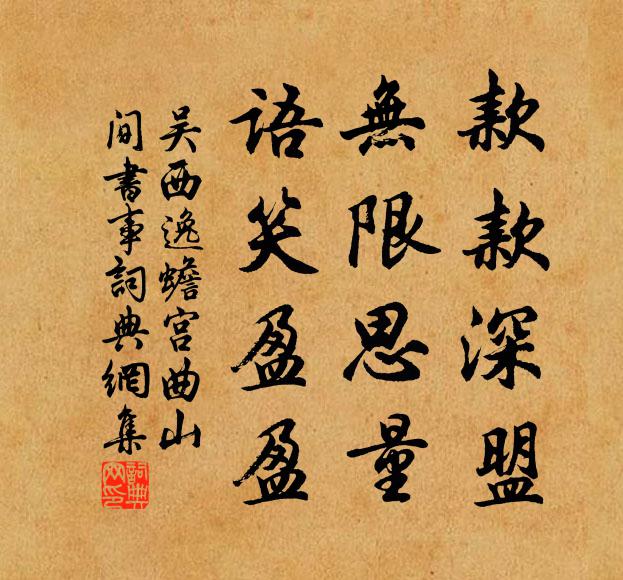 款款深盟
無限思量
語笑盈盈
吴西逸蟾宫曲山
间書事詞典網集
詞典网印